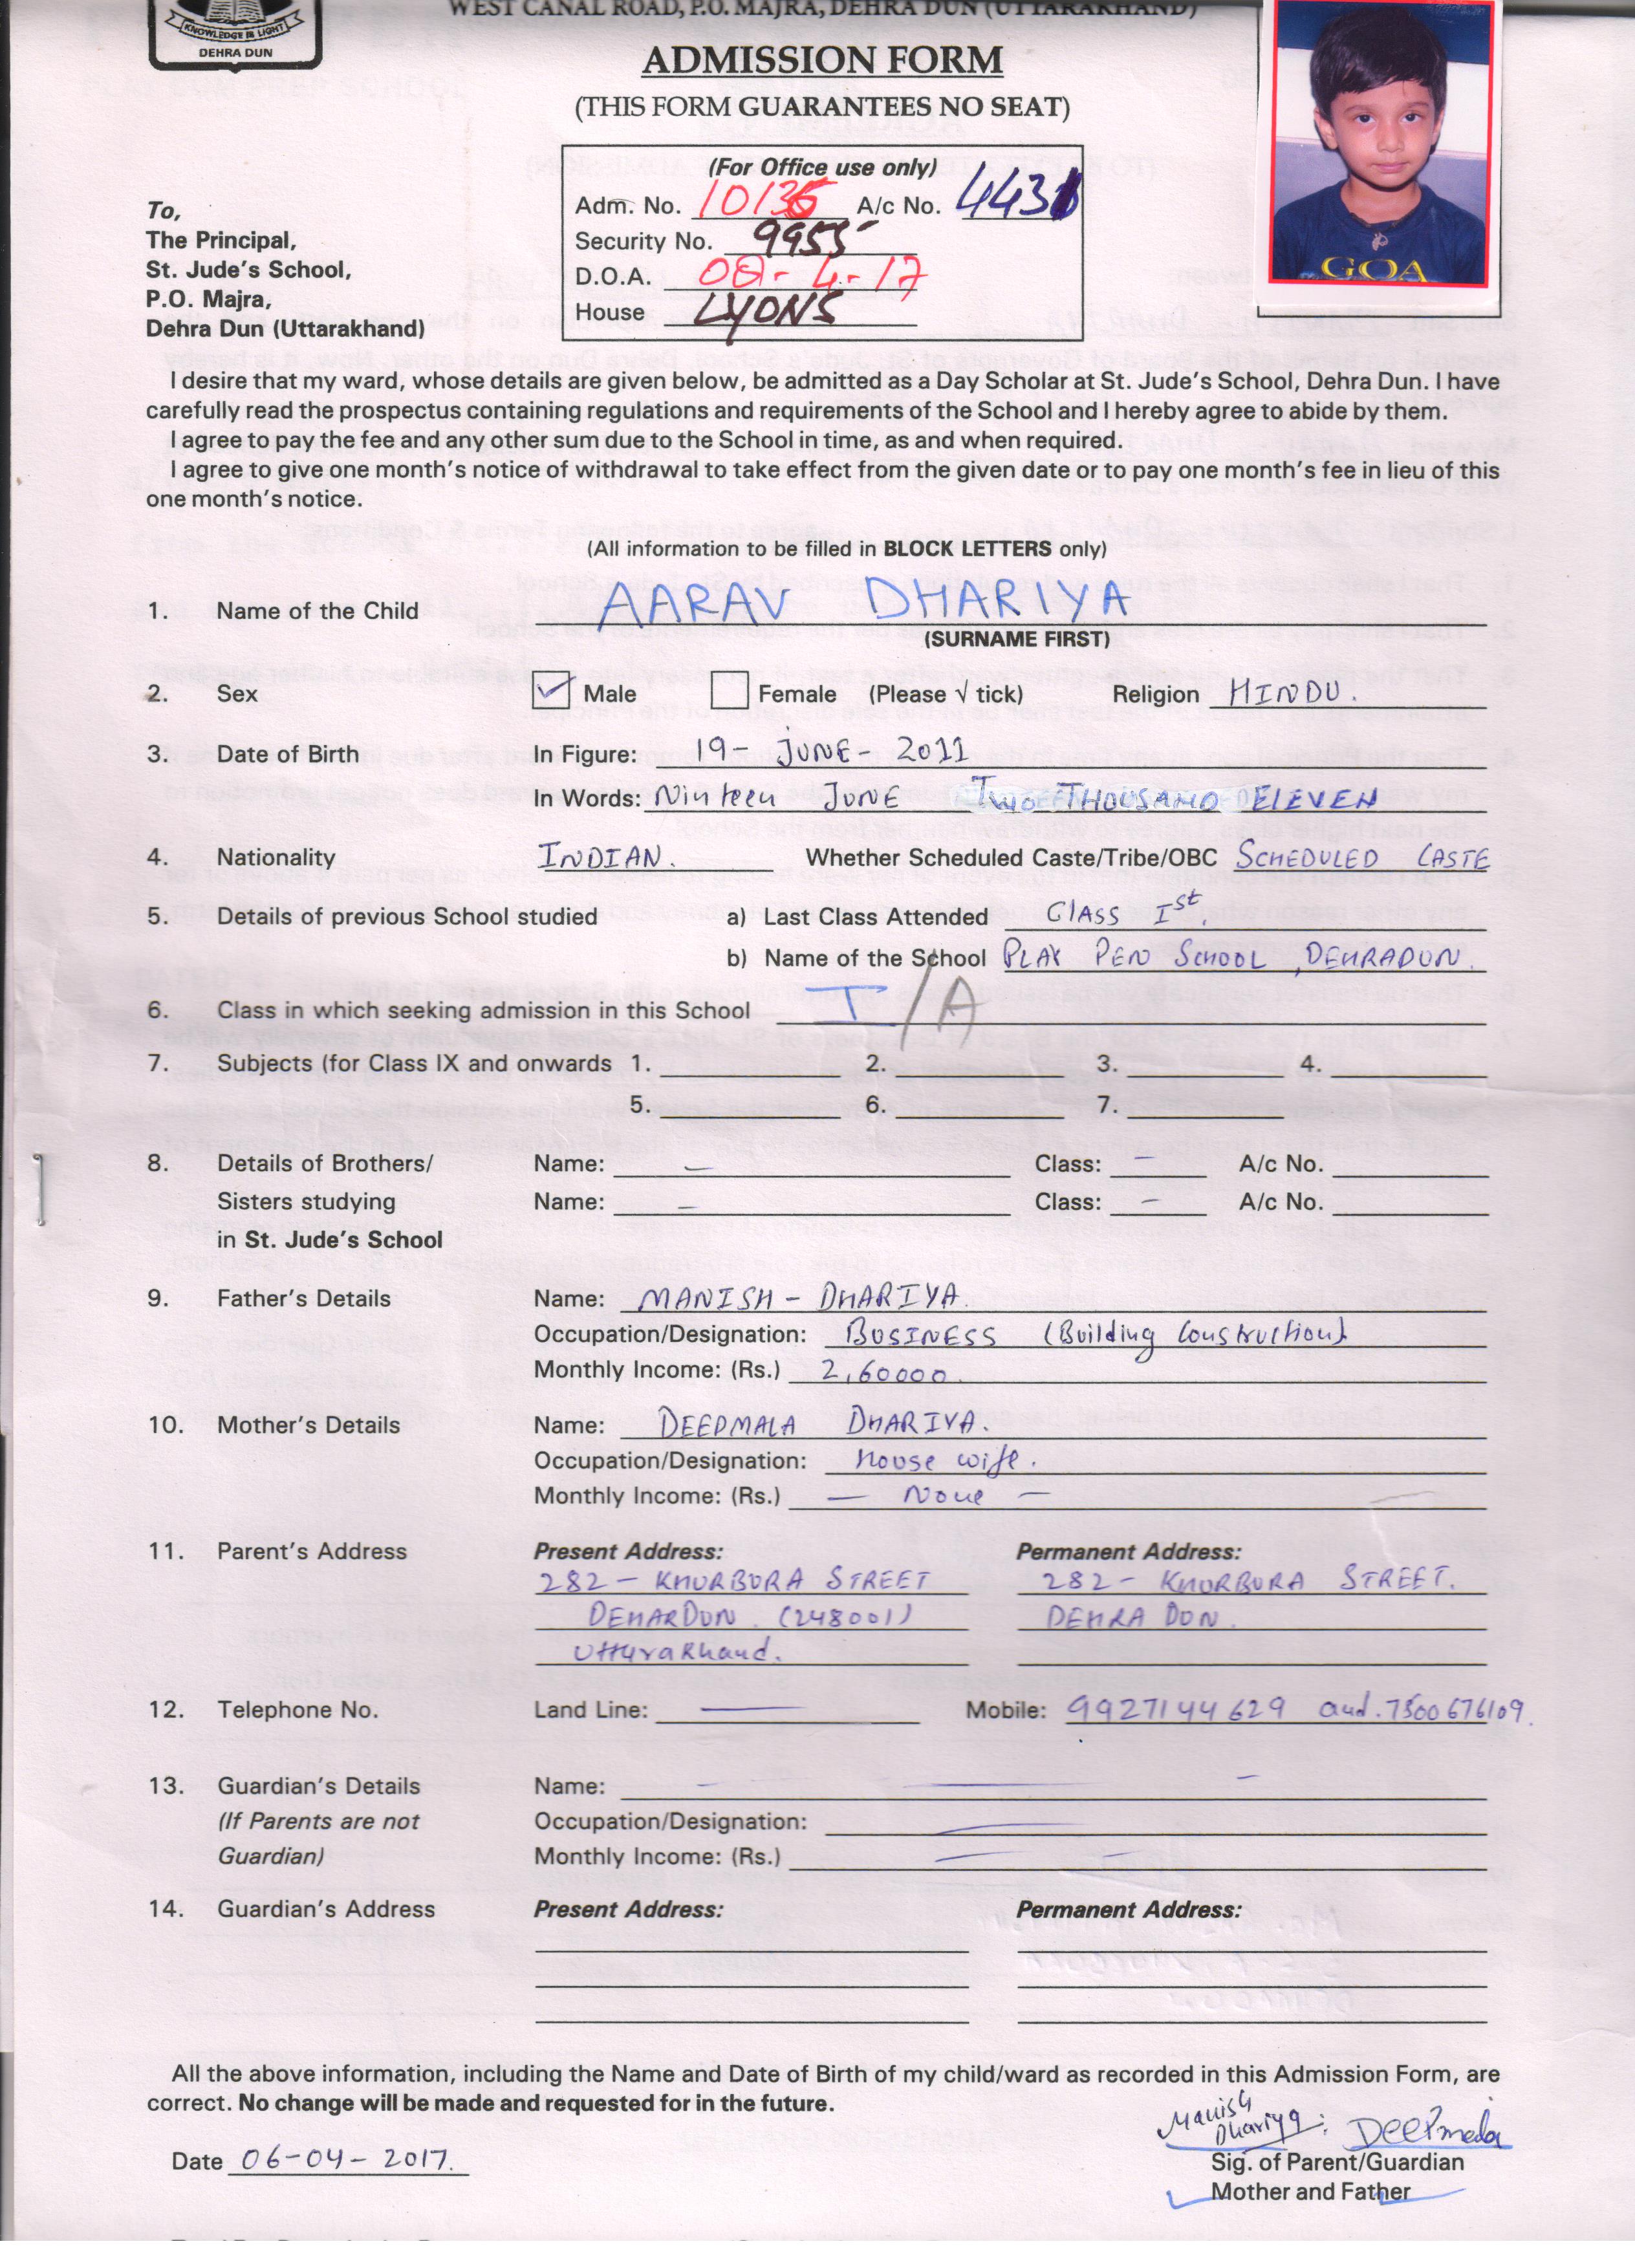 WEST CANAL ROAD, P.O. MAJRA, DEHRA DUN (UTTARAKHAND)
KNOWLEDGE IS LIGHT
DEHRA DUN
ADMISSION FORM
(THIS FORM GUARANTEES NO SEAT)
(For Office use only)
Adm. No. 10136 A/c No. 4431
Security No. 9955
D.O.A. 08-4-17
House LYONS
To,
The Principal,
St. Jude's School,
P.O. Majra,
Dehra Dun (Uttarakhand)
GOA
I desire that my ward, whose details are given below, be admitted as a Day Scholar at St. Jude's School, Dehra Dun. I have
carefully read the prospectus containing regulations and requirements of the School and I hereby agree to abide by them.
I agree to pay the fee and any other sum due to the School in time, as and when required.
I agree to give one month's notice of withdrawal to take effect from the given date or to pay one month's fee in lieu of this
one month's notice.
(All information to be filled in BLOCK LETTERS only)
1. Name of the Child AARAV DHARIYA
(SURNAME FIRST)
2. Sex ✓ Male Female (Please √ tick) Religion HINDU.
3. Date of Birth In Figure: 19- JUNE- 2011
In Words: Ninteen JUNE Two THOUSAND ELEVEN
4. Nationality INDIAN. Whether Scheduled Caste/Tribe/OBC SCHEDULED CASTE
5. Details of previous School studied a) Last Class Attended Class Ist.
b) Name of the School PLAY PEN SCHOOL, DEHRADUN.
6. Class in which seeking admission in this School I/A
7. Subjects (for Class IX and onwards 1. 2. 3. 4.
5. 6. 7.
8. Details of Brothers/ Name: — Class: — A/c No.
Sisters studying Name: — Class: — A/c No.
in St. Jude's School
9. Father's Details Name: MANISH - DHARIYA.
Occupation/Designation: BUSINESS (Building Construction)
Monthly Income: (Rs.) 2,60000.
10. Mother's Details Name: DEEPMALA DHARIYA.
Occupation/Designation: House wife.
Monthly Income: (Rs.) — None —
11. Parent's Address Present Address: Permanent Address:
282 - KHURBURA STREET 282 - KHURBURA STREET.
DEHARDUN. (248001) DEHRA DUN.
Utturakhand.
12. Telephone No. Land Line: — Mobile: 9927144629 and. 7500676109.
13. Guardian's Details Name: — — —
(If Parents are not Occupation/Designation: —
Guardian) Monthly Income: (Rs.) — —
14. Guardian's Address Present Address: Permanent Address:
All the above information, including the Name and Date of Birth of my child/ward as recorded in this Admission Form, are
correct. No change will be made and requested for in the future.
Manish
Dhariya: Deepmala
Date 06-04-2017.
Sig. of Parent/Guardian
Mother and Father